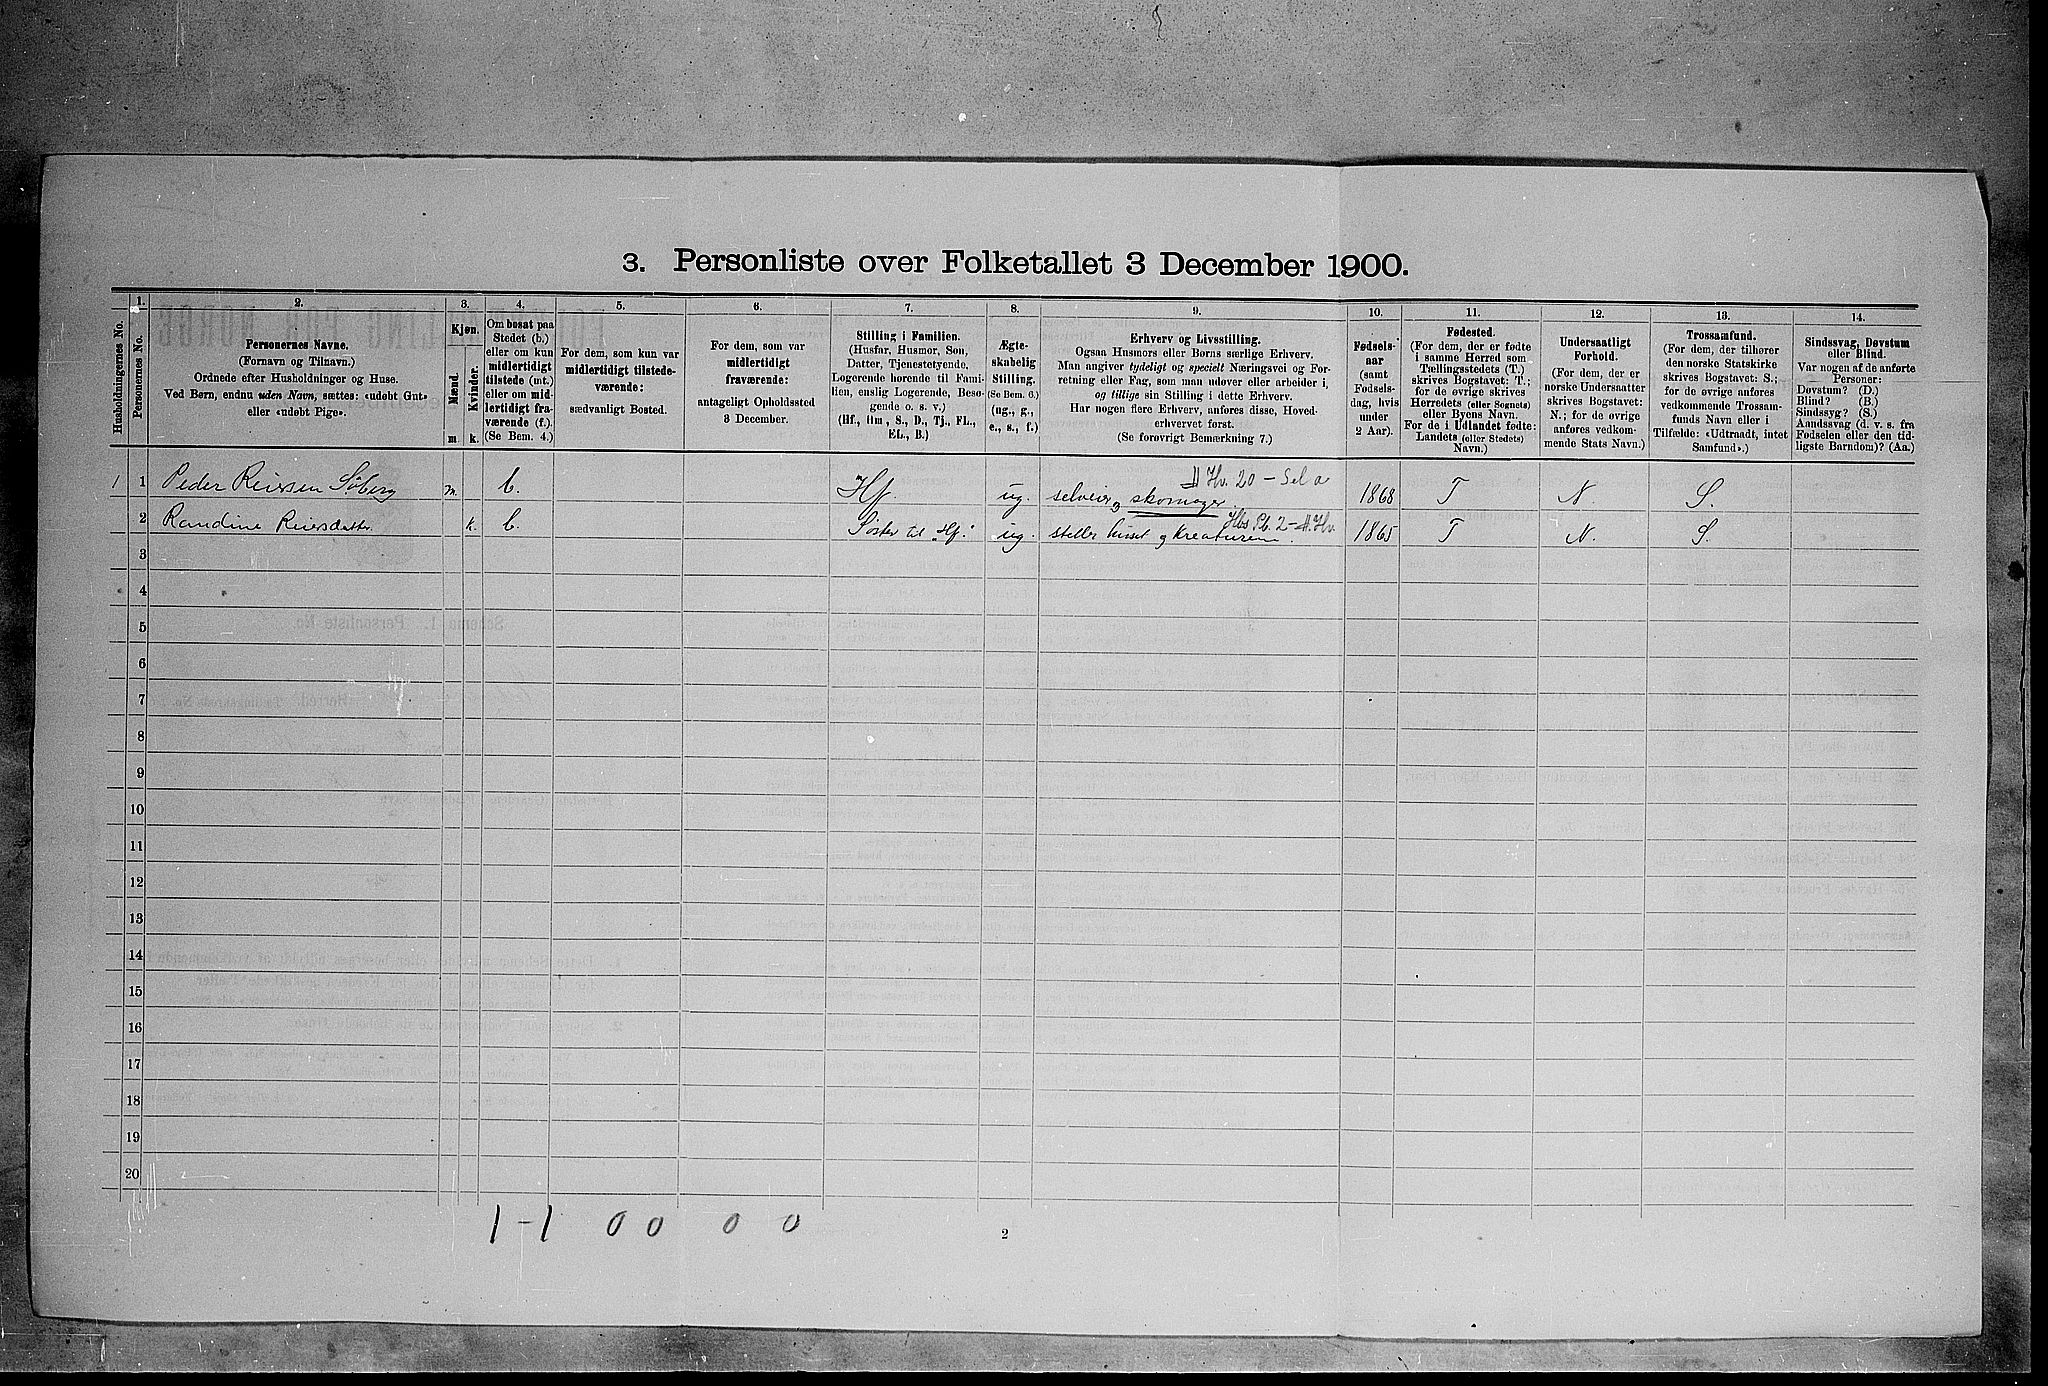 3. Personliste over Folketallet 3 December 1900.
Husholdningernes No.
1.
Personernes No.
2.
Personernes Navne.
(Fornavn og Tilnavn.)
Ordnede efter Husholdninger og Huse.
Ved Børn, endnu uden Navn, sættes: «udøbt Gut»
eller «udøbt Pige».
3.
Kjøn.
Mænd.
Kvinder.
m. k.
4.
Om bosat paa
Stedet (b.)
eller om kun
midlertidigt
tilstede (mt.)
eller om mid-
lertidigt fra-
værende (f.).
(Se Bem. 4.)
5.
For dem, som kun var
midlertidigt tilstede-
værende:
sædvanligt Bosted.
6.
For dem, som var
midlertidigt
fraværende:
antageligt Opholdssted
3 December.
7.
Stilling i Familien.
(Husfar, Husmor, Søn,
Datter, Tjenestetyende,
Logerende hørende til Fami-
lien, enslig Logerende, Besø-
gende o. s. v.)
(Hf., Hm, S., D., Tj., FL.,
EL., B.)
8.
Ægte-
skabelig
Stilling.
(Se Bem. 6.)
(ug., g.,
e., s., f.)
9.
Erhverv og Livsstilling.
Ogsaa Husmors eller Børns særlige Erhverv.
Man angiver tydeligt og specielt Næringsvei og For-
retning eller Fag, som man udøver eller arbeider i,
og tillige sin Stilling i dette Erhverv.
Har nogen flere Erhverv, anføres disse, Hoved-
erhvervet først.
(Se forøvrigt Bemærkning 7.)
10.
Fødsels-
aar
(samt
Fødsels-
dag, hvis
under
2 Aar).
11.
Fødested.
(For dem, der er fødte
i samme Herred som
Tællingsstedets (T.)
skrives Bogstavet: T.;
for de øvrige skrives
Herredets (eller Sognets)
eller Byens Navn.
For de i Udlandet fødte:
Landets (eller Stedets)
Navn.)
12.
Undersaatligt
Forhold.
(For dem, der er
norske Undersaatter
skrives Bogstavet:
N.; for de øvrige
anføres vedkom-
mende Stats Navn.)
13.
Trossamfund.
(For dem, der tilhører
den norske Statskirke
skrives Bogstavet: S.;
for de øvrige anføres
vedkommende Trossam-
funds Navn eller i
Tilfælde: «Udtraadt, intet
Samfund».)
14.
Sindssvag, Døvstum
eller Blind.
Var nogen af de anførte
Personer:
Døvstum? (D.)
Blind? (B.)
Sindssyg? (S.)
Aandssvag (d. v. s. fra
Fødselen eller den tid-
ligste Barndom)? (Aa.)
1 1 Peder Reiersen Søberg m. b. Hf. ug. selveier, skomager Hv. 20 – Sel a 1868 T N. S.
2 Randine Reiersdatter k. b. Søster til "Hf." ug. steller huset og kreaturene. Hbs Pb. 2 – Hv. 1865 T N. S.
3
4
5
6
7
8
9
10
11
12
13
14
15
16
17
18
19
20
1-1 0 0 0 0
2